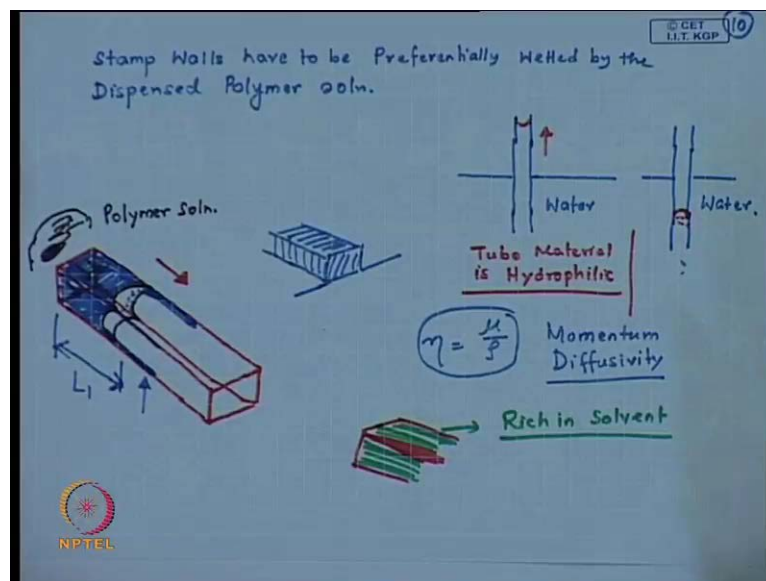 © CET
I.I.T. KGP
10
Stamp Walls have to be Preferentially Wetted by the
Dispensed Polymer soln.
Polymer Soln.
Water
Water.
Tube Material
is Hydrophilic
η = μ/ρ
Momentum
Diffusivity
L1
Rich in Solvent
NPTEL